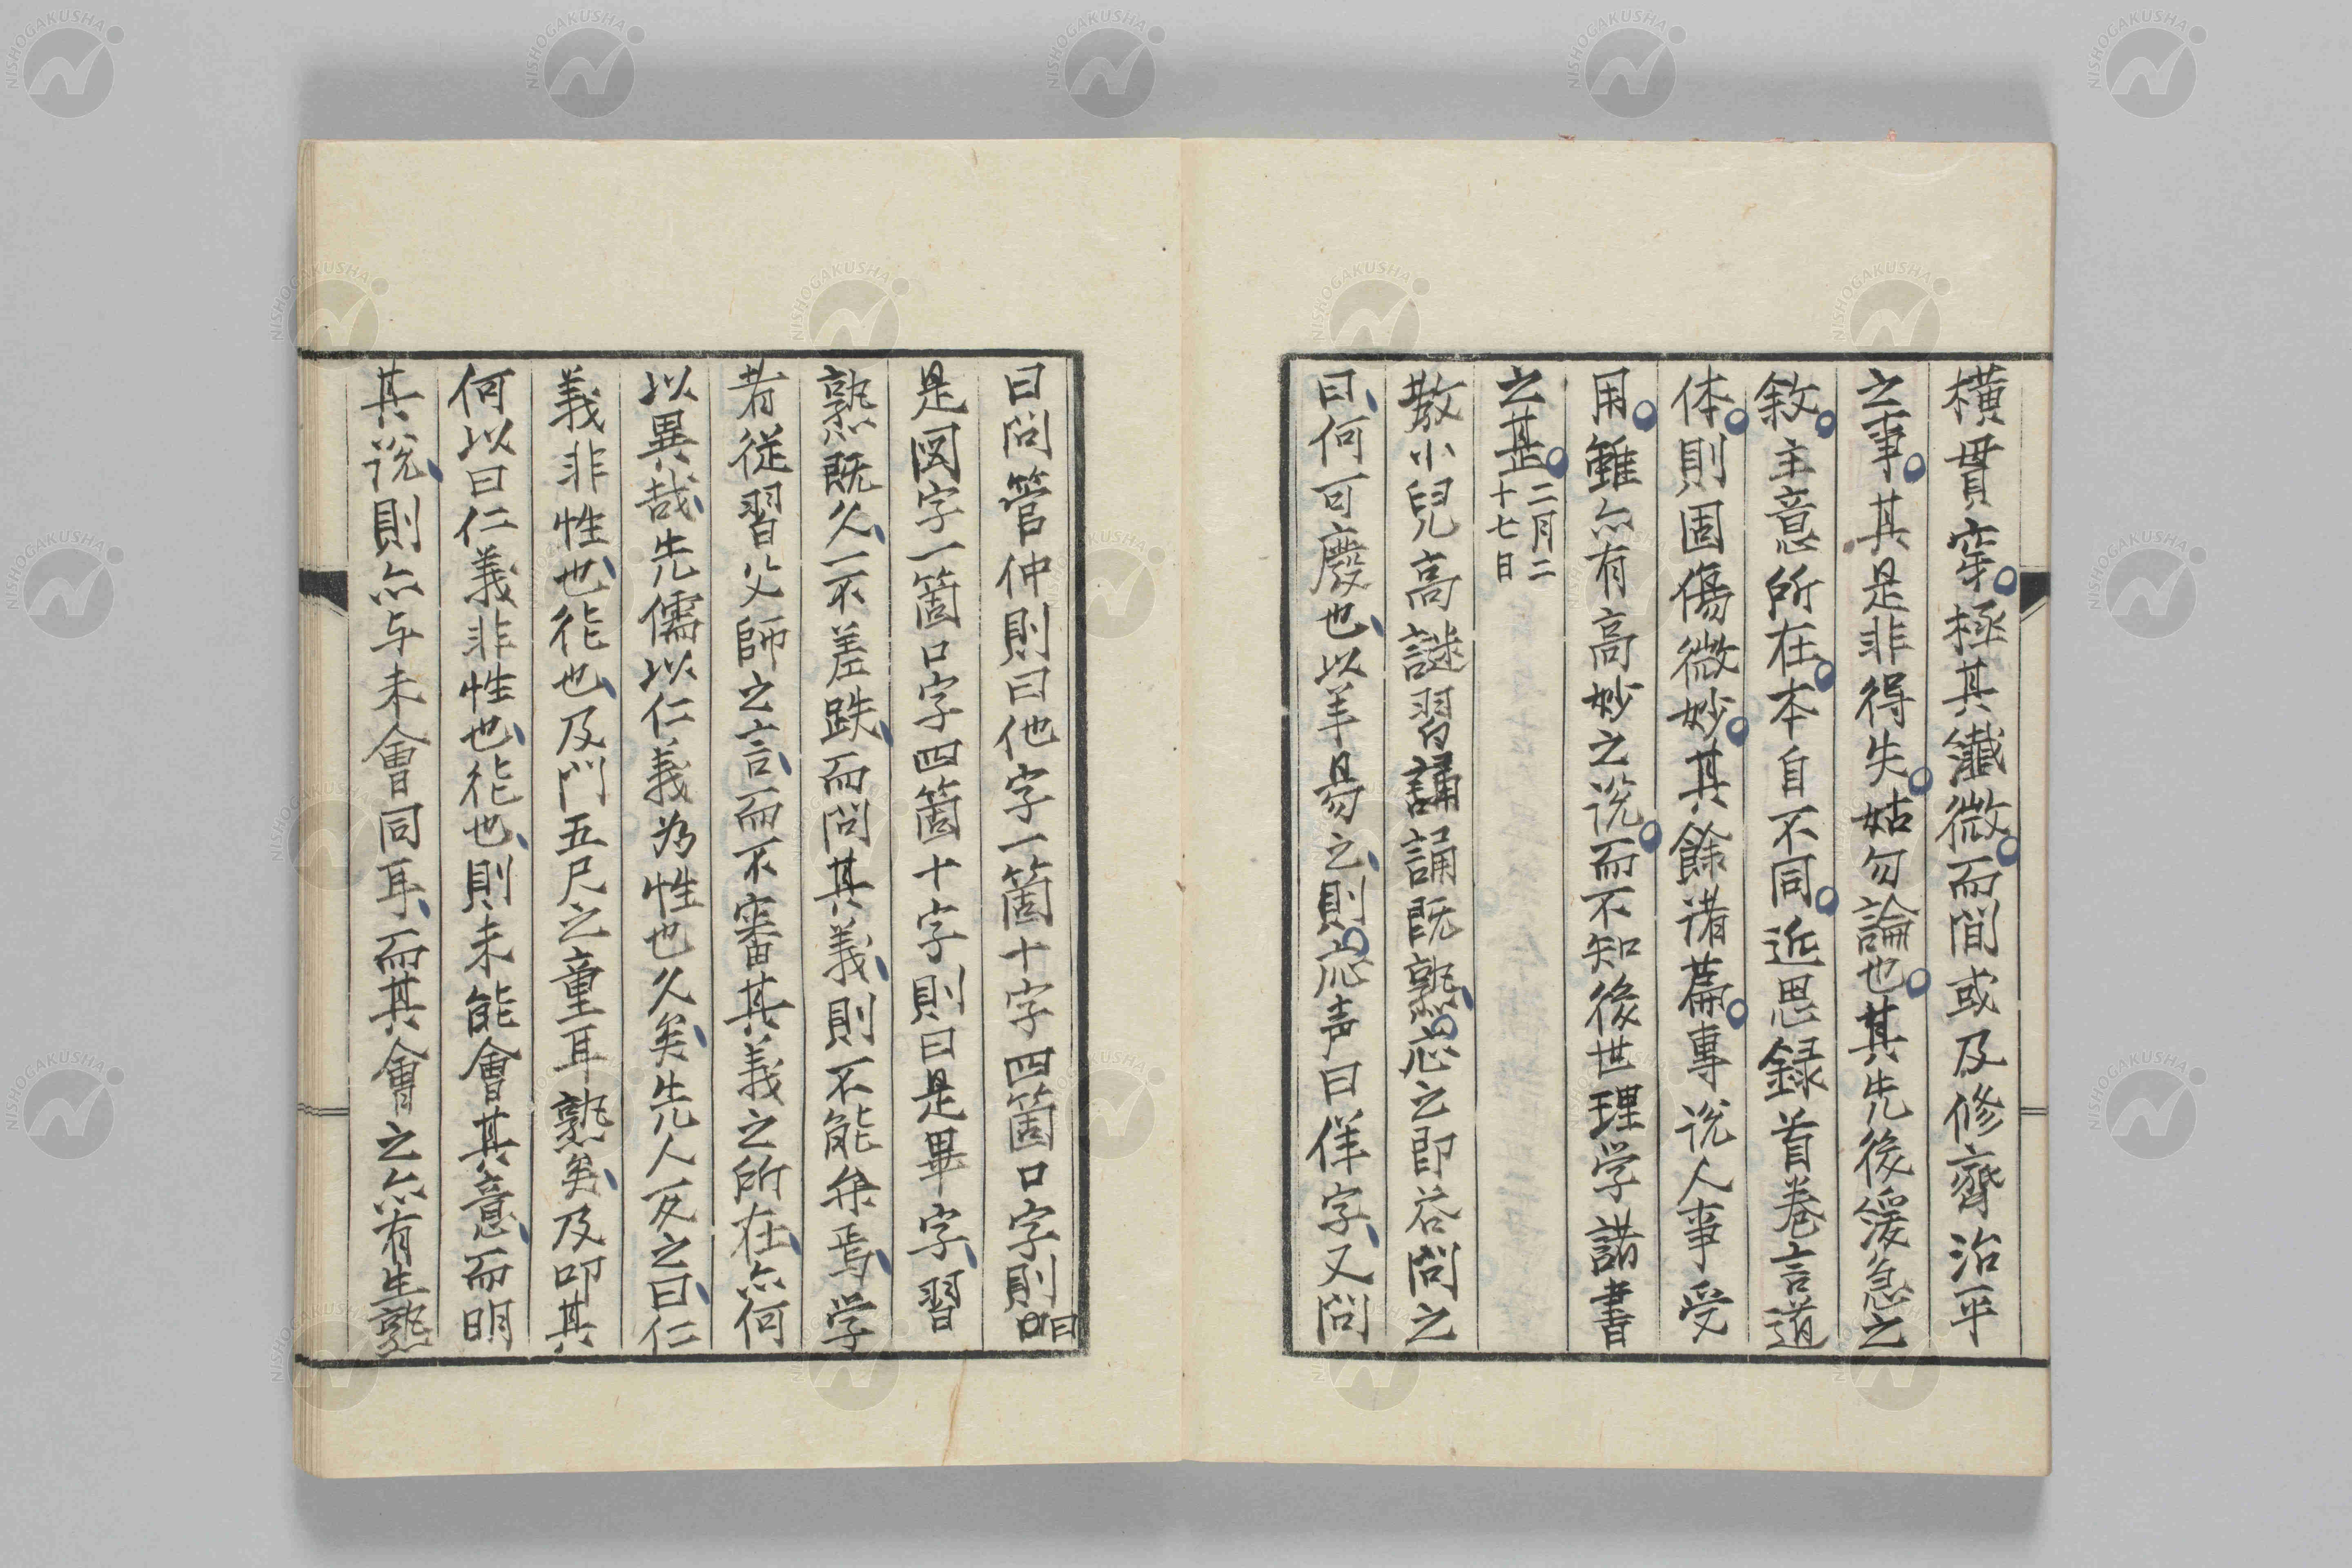 横貫穿極其纎微而間或及修齊治平
之事其是非得失姑勿論也其先後緩急之
敘主意所在本自不同近思録首巻言道
体則固傷微妙其餘諸萹專说人事受
用雖亦有高妙之说而不知後世理学諸書
之基二月二十七日
教小兒高謎習誦誦既熟応之即谷问之
曰何可廢也以羊易之則応声曰佯字又问
曰问管仲則曰他字一箇十字四箇口字則曰
是図字一箇口字四箇十字則曰是畢字習
熟既久一不差跌而问其義則不能弁焉学
者従習父師之言而不審其義之所在亦何
以異哉先儒以仁義为性也久矣先人反之曰仁
義非性也徳也及門五尺之童耳熟矣及叩其
何以曰仁義非性也徳也則未能會其意而明
其说則亦与未會同耳而其會之亦有生熟
NISHOGAKUSHA